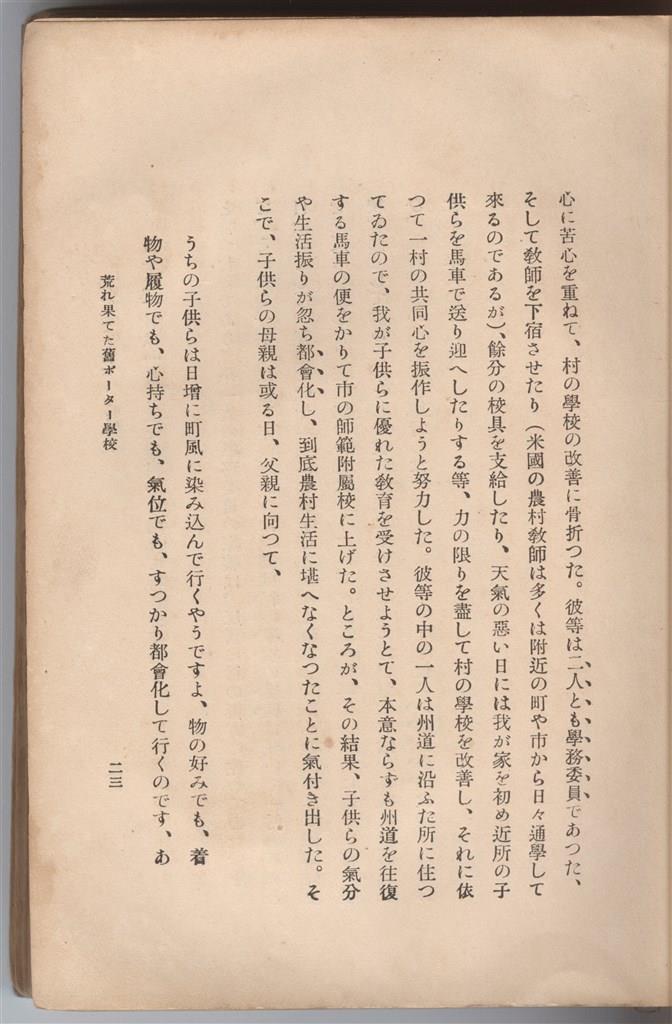 心に苦心を重ねて、村の學校の改善に骨折つた。彼等は二人とも學務委員であつた、
そして敎師を下宿させたり（米國の農村敎師は多くは附近の町や市から日々通學して
來るのであるが）、餘分の校具を支給したり、天氣の惡い日には我が家を初め近所の子
供らを馬車で送り迎へしたりする等、力の限りを盡して村の學校を改善し、それに依
つて一村の共同心を振作しようと努力した。彼等の中の一人は州道に沿ふた所に住つ
てゐたので、我が子供らに優れた敎育を受けさせようとて、本意ならずも州道を往復
する馬車の便をかりて市の師範附屬校に上げた。ところが、その結果、子供らの氣分
や生活振りが忽ち都會化し、到底農村生活に堪へなくなつたことに氣付き出した。そ
こで、子供らの母親は或る日、父親に向つて、
うちの子供らは日增に町風に染み込んで行くやうですよ、物の好みでも、着
物や履物でも、心持ちでも、氣位でも、すつかり都會化して行くのです、あ
荒れ果てた舊ポーター學校
二三